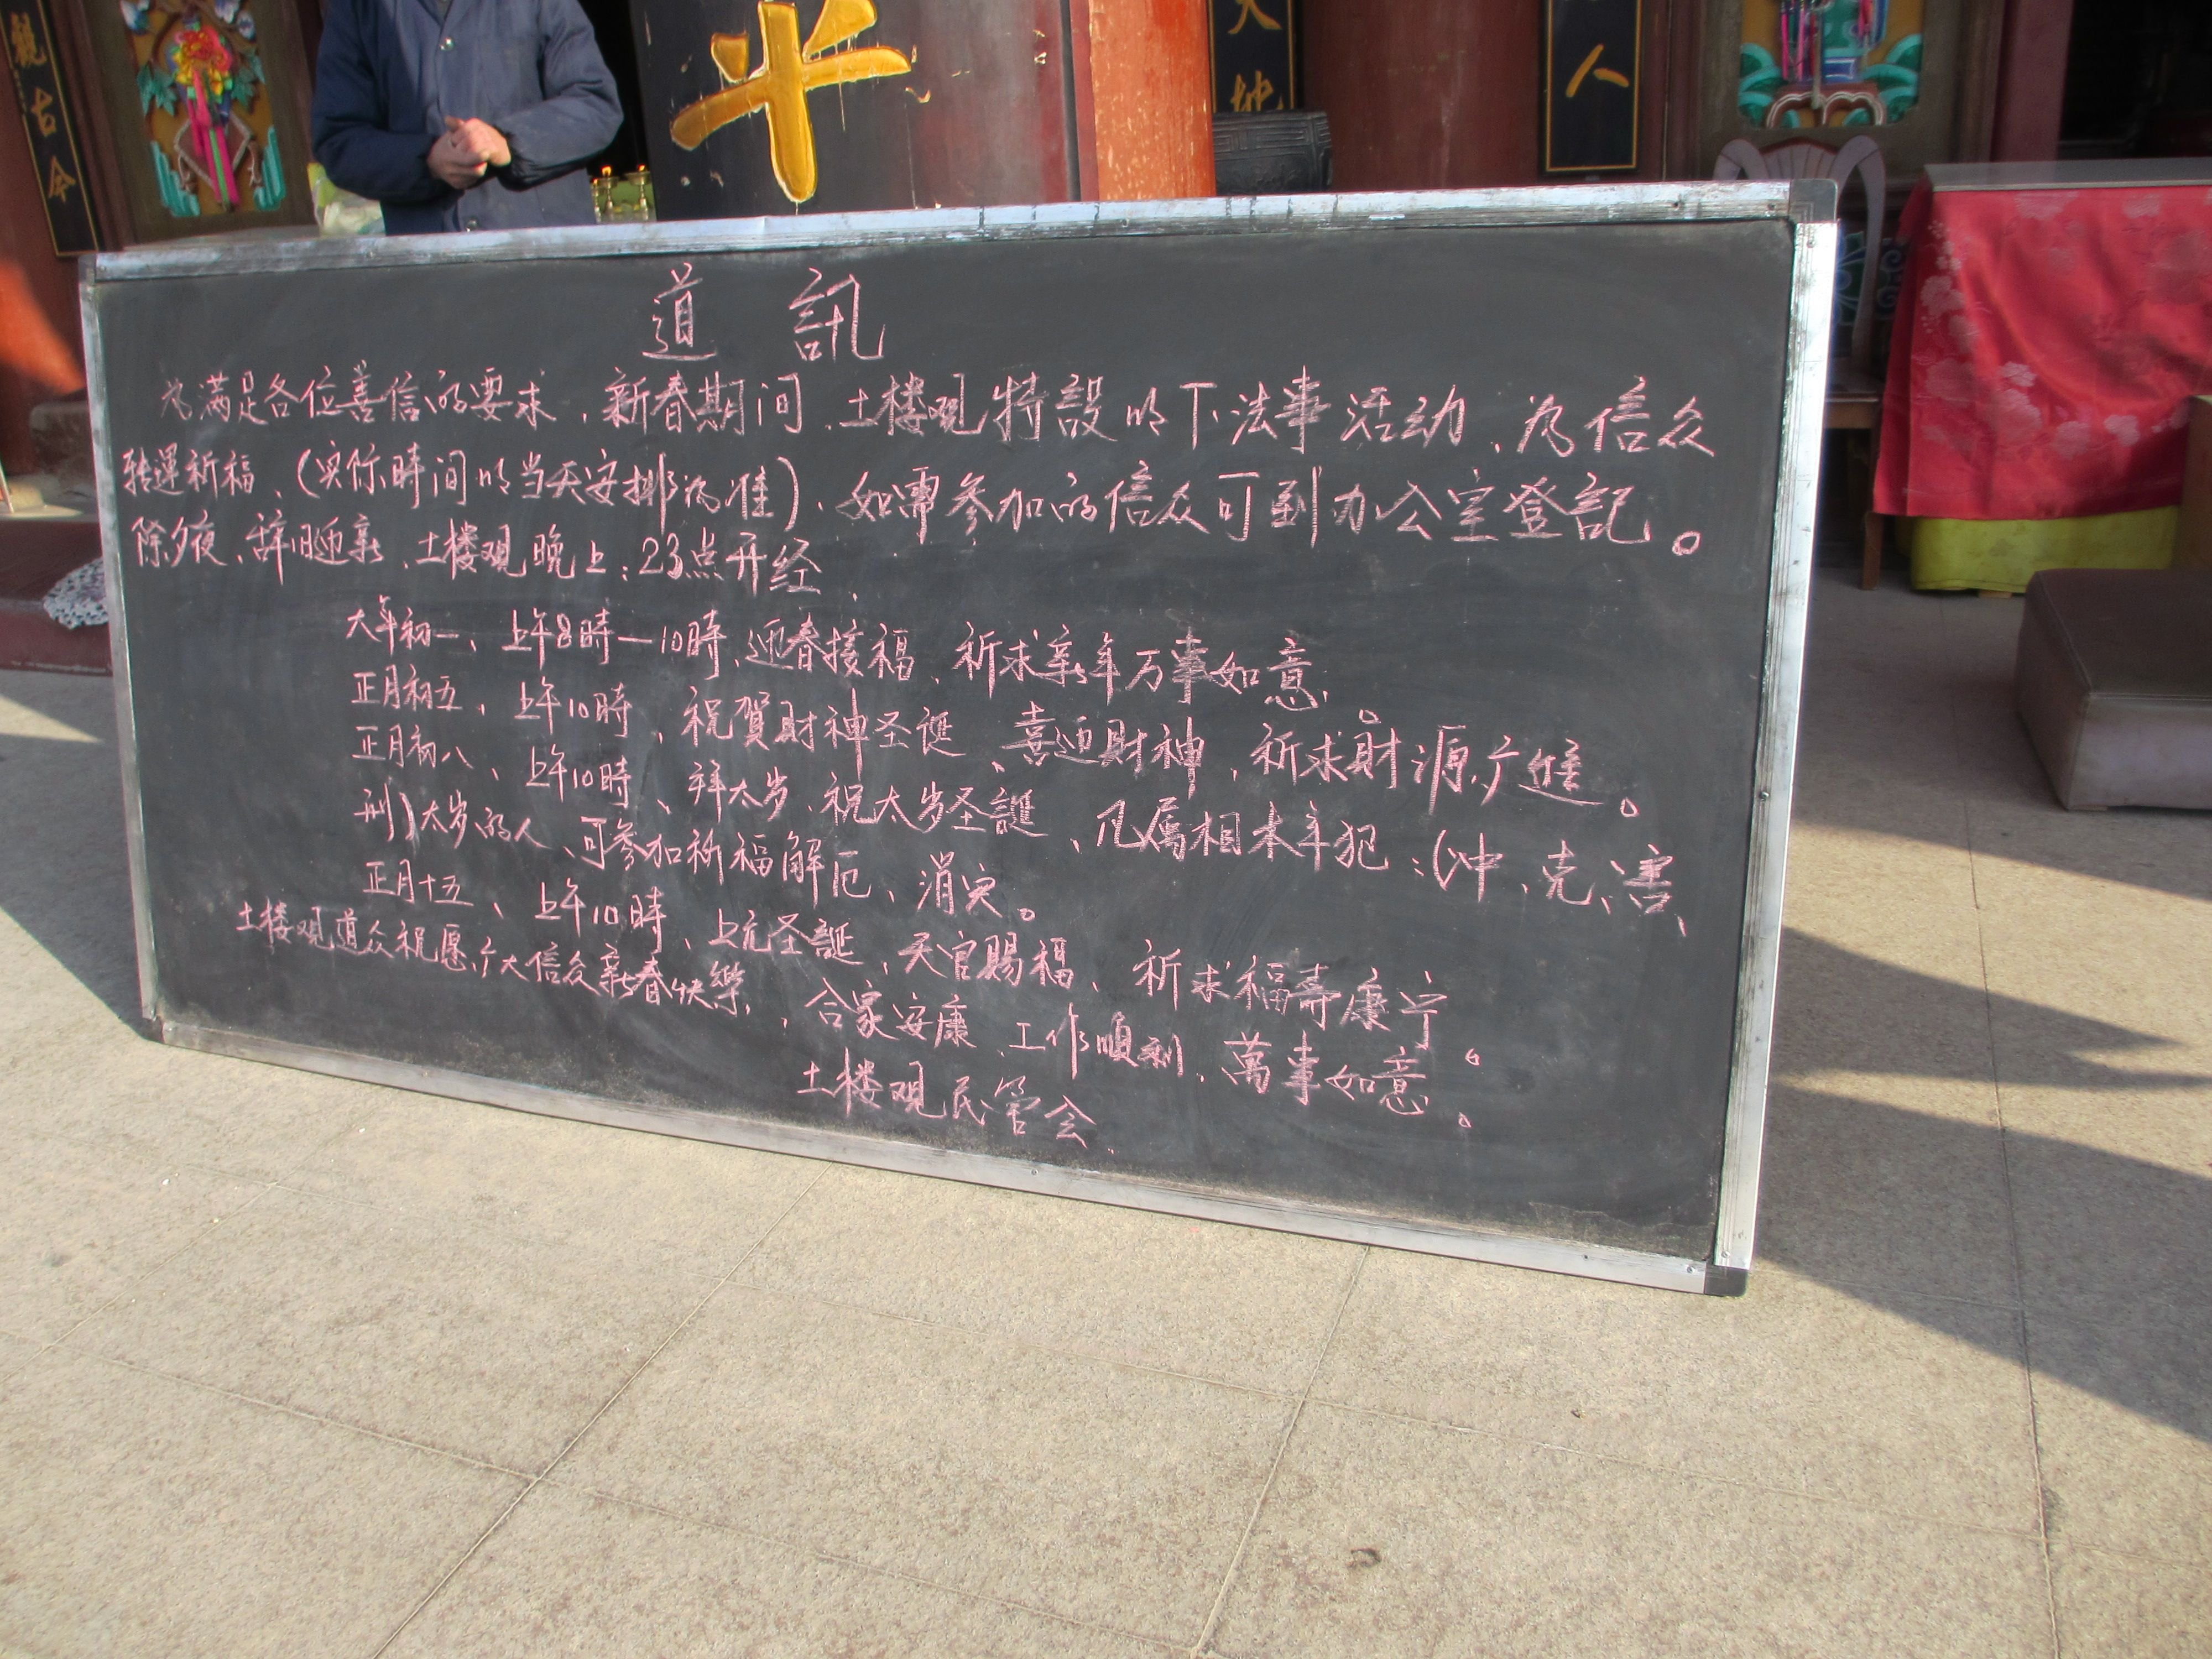 觀古今
平
天地
人
道訊
为满足各位善信的要求，新春期间，土楼观特設以下法事活动，为信众
转運祈福、(实际時间以当天安排為准)、如需参加的信众可到办公室登記。
除夕夜、辞旧迎新、土楼观晚上：23点开经、
大年初一、上午8時—10時、迎春接福、祈求新年万事如意。
正月初五、上午10時、祝賀財神圣诞、喜迎財神，祈求財源广進。
正月初八、上午10時、拜太岁、祝太岁圣誕、凡属相本年犯：(冲、克、害、
刑)太岁的人、可参加祈福解厄、消灾。
正月十五、上午10時、上元圣誕、天官賜福、祈求福寿康宁。
土楼观道众祝愿广大信众新春快樂，合家安康、工作順利、萬事如意。
土楼观民管会